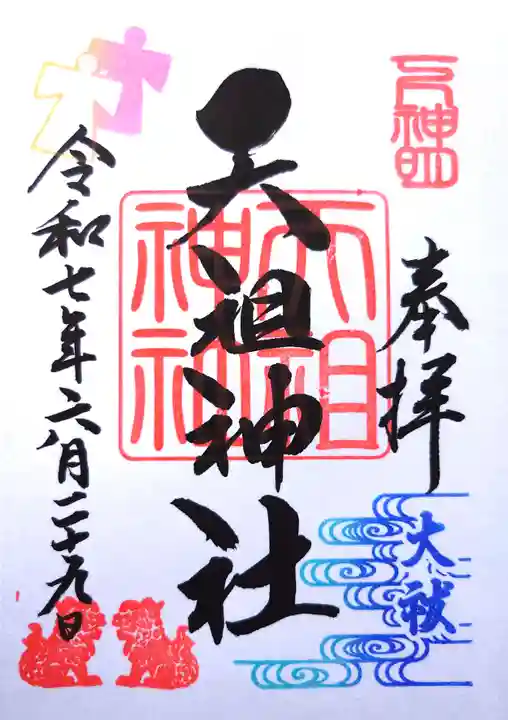 奉拝
大祓
天祖神社
天祖神社
令和七年六月二十九日